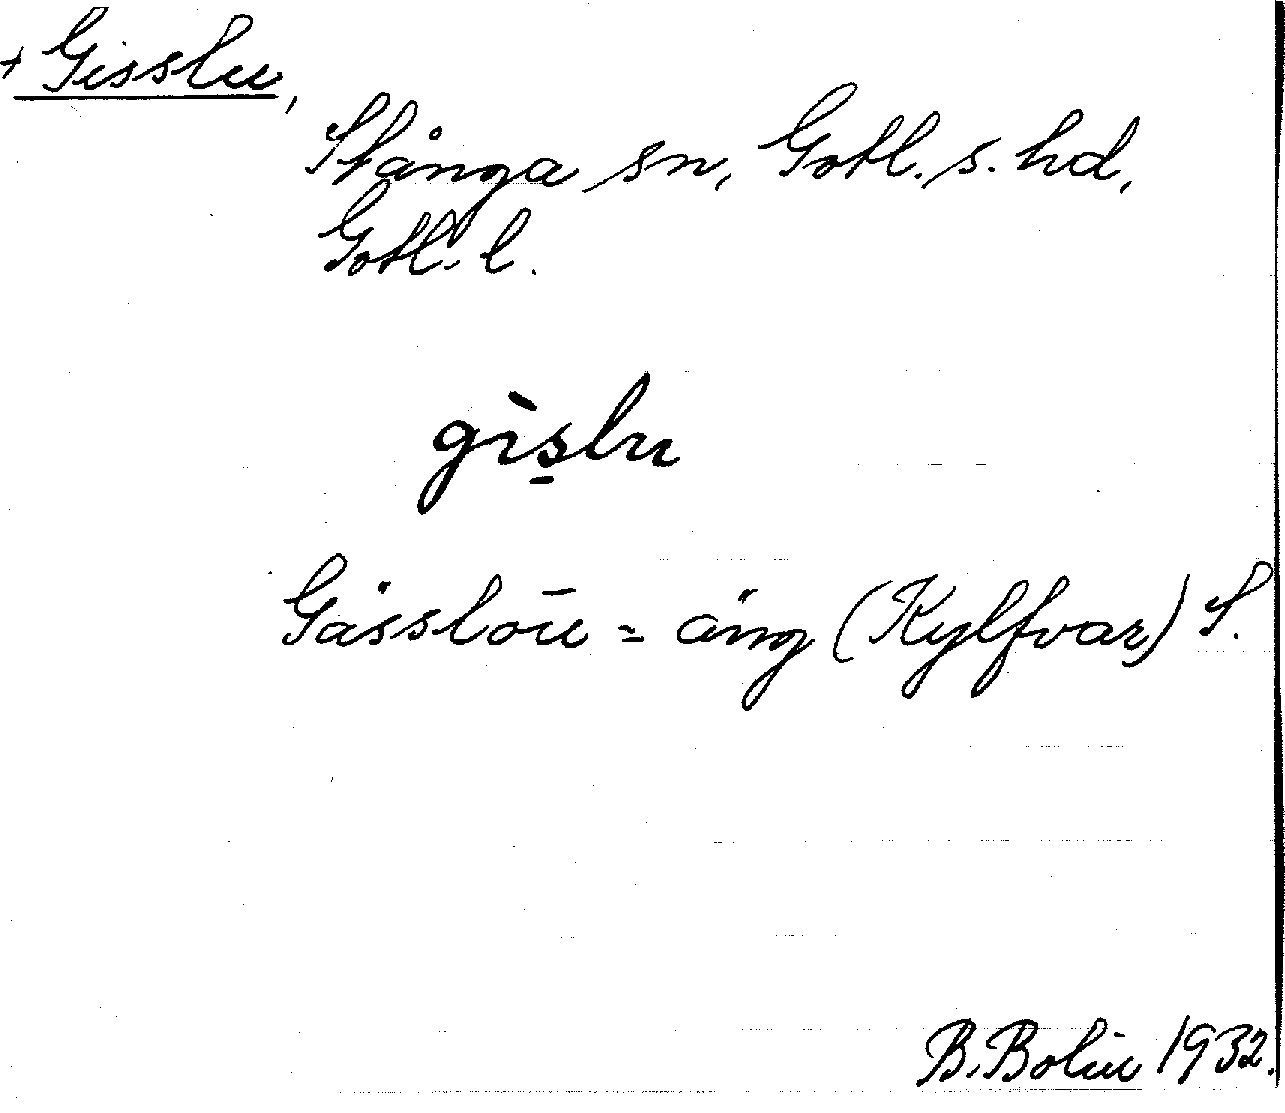 + Gisslu,
Stånga sn, Gotl. s. hd,
Gotl. l.
gìs̱lu
Gässlöū = äng (Kylfvar) S.
B. Bolin 1932.